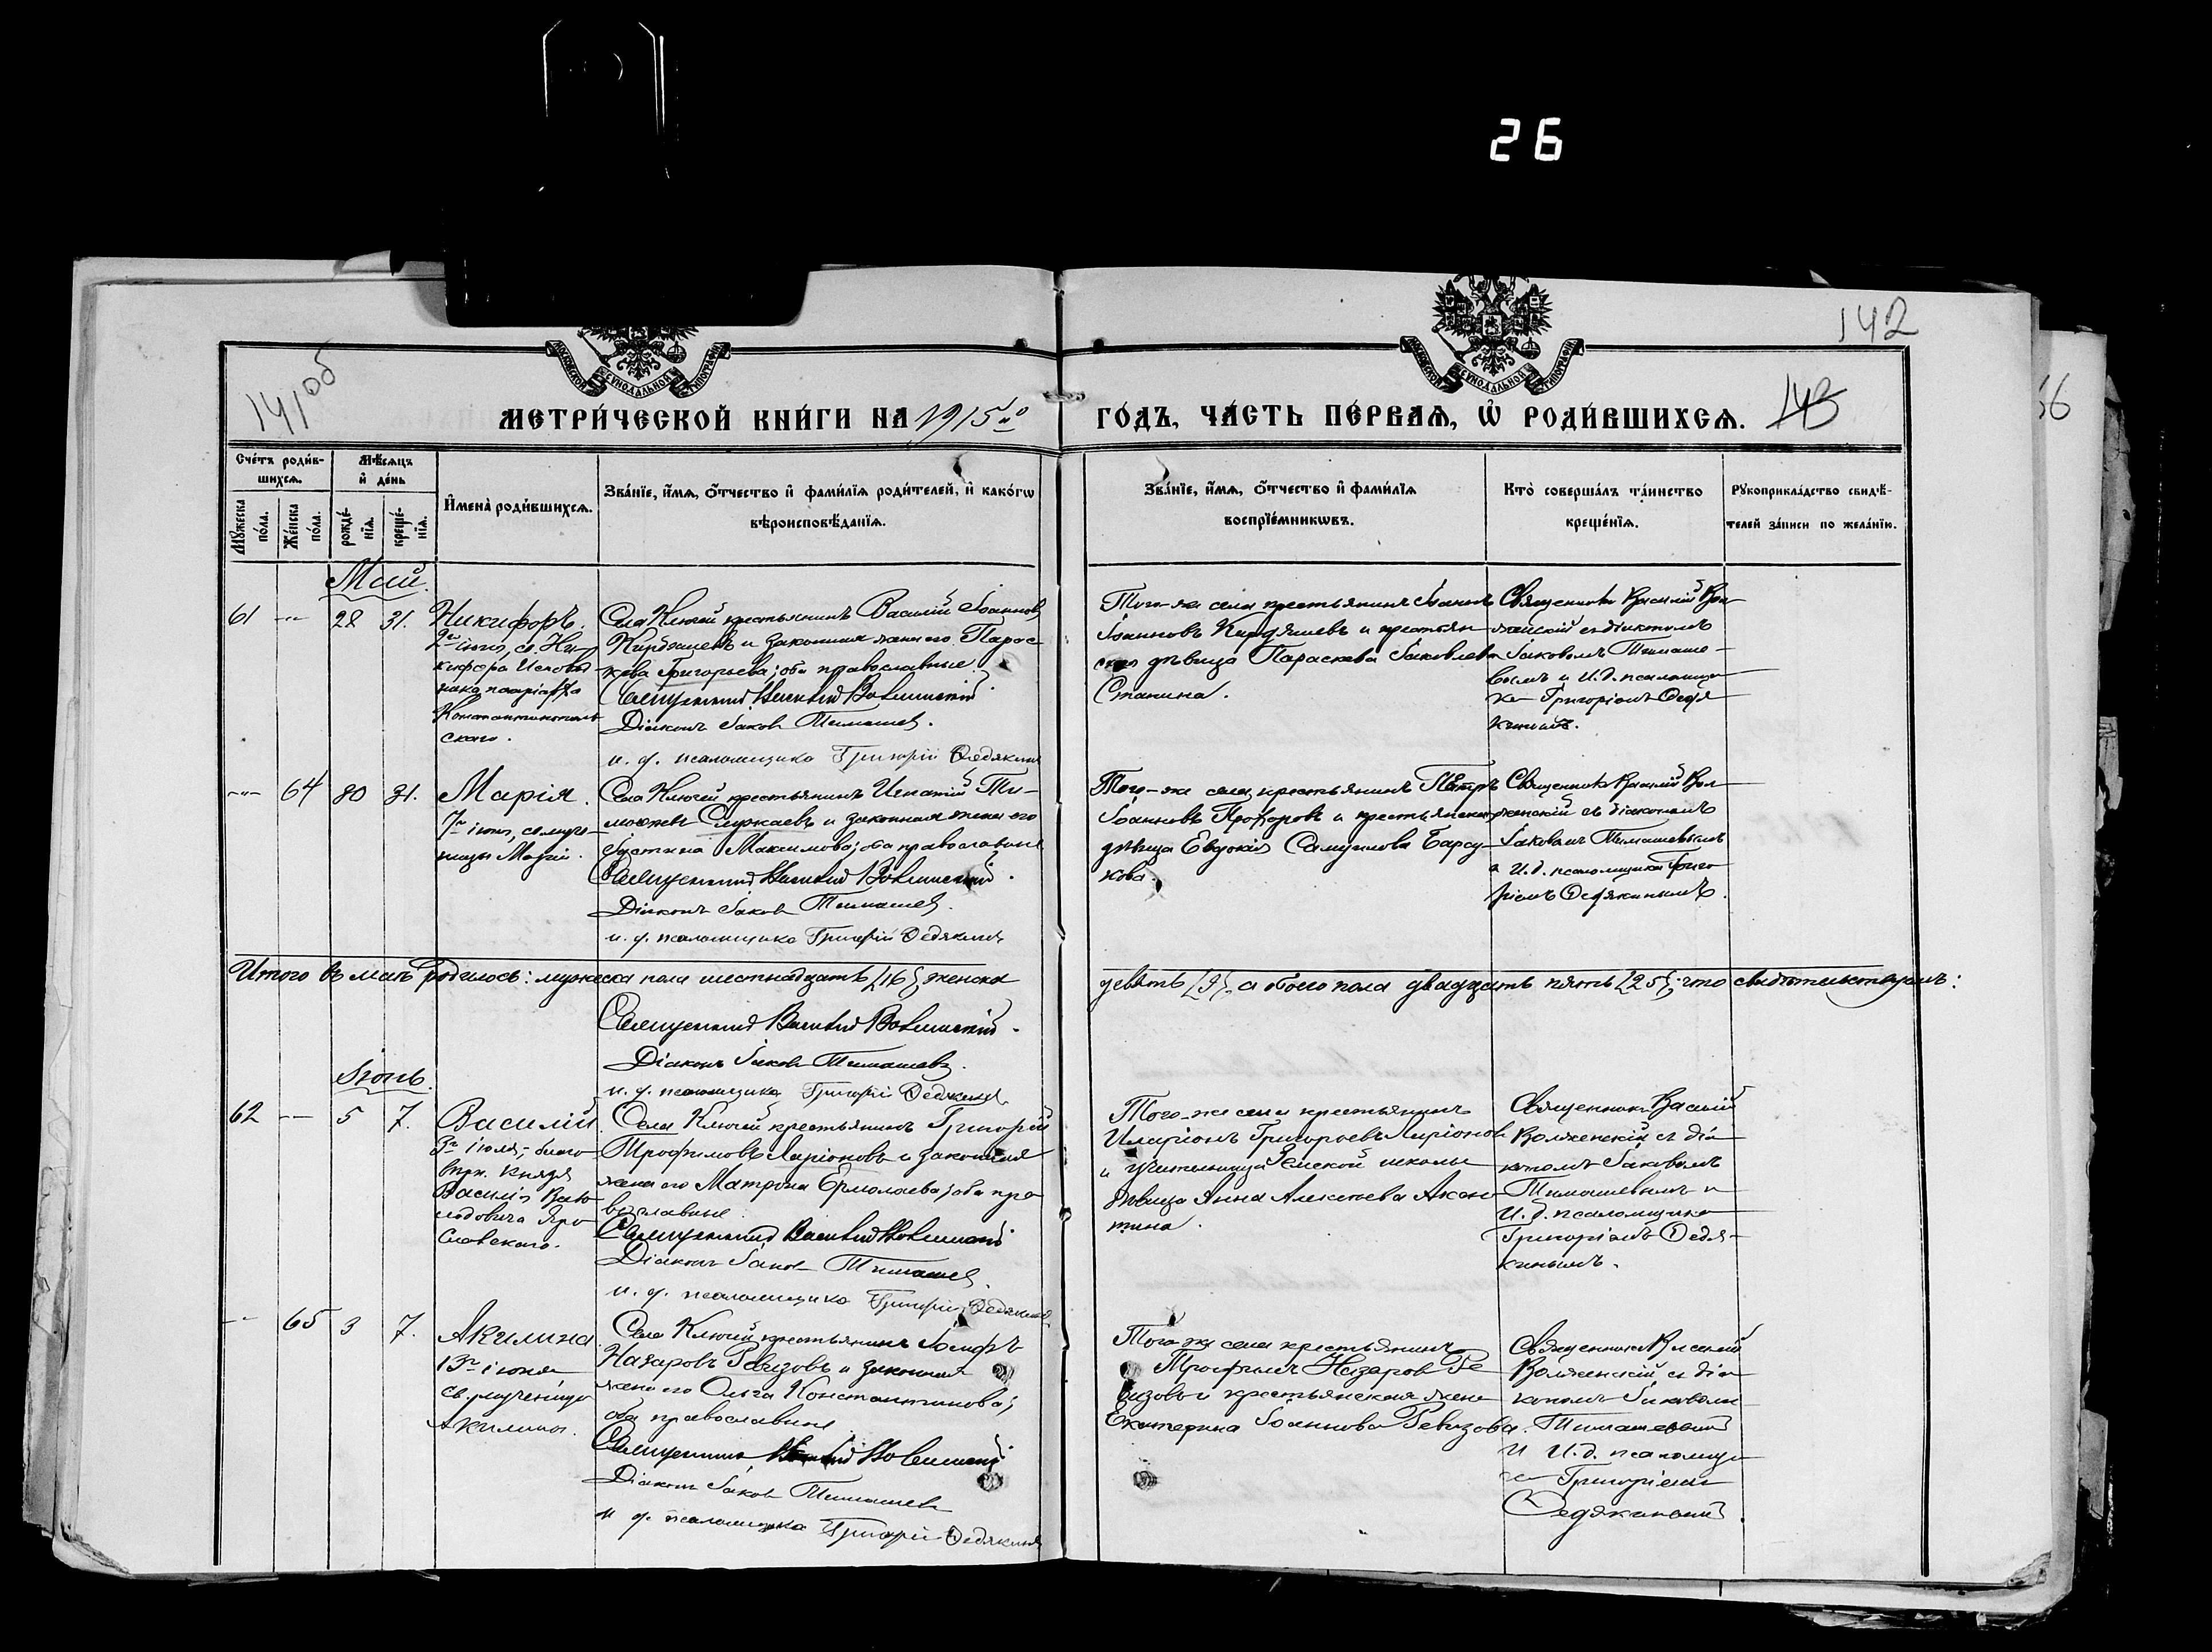 26
142
141об
МОСКОВСКОЙ СѴНОДАЛЬНОЙ ТИПОГРАФІИ
МОСКОВСКОЙ СѴНОДАЛЬНОЙ ТИПОГРАФІИ
МЕТРИ́ЧЕСКОЙ КНИ́ГИ НА 1915го ГО́ДЪ, ЧА́СТЬ ПЕ́РВАЯ, Ѡ҆ РОДИ́ВШИХСЯ. 143
Сче́тъ роди́в-
шихся.
Мꙋ́жеска по́ла.
Же́нска по́ла.
Мѣ́сяцъ и҆ де́нь
рожде́-нїя.
креще́-нїя.
И҆мена̀ роди́вшихся.
Зва́нїе, и҆́мя, ѻ҆́тчество и҆ фами́лїя роди́телей, и҆ како́гѡ
вѣроисповѣ́данїя.
Зва́нїе, и҆́мя, ѻ҆́тчество и҆ фами́лїя
воспрїе́мникѡвъ.
Кто̀ соверша́лъ та́инство
креще́нїя.
Рꙋкоприкла́дство свидѣ́-
телей за́писи по жела́нїю.
Май.
61 -"- 28 31.
Никифоръ.
2го іюня, св. Ни-
кифора Исповѣд
ника, патріарха
Константинополь
скаго.
Села Ключей крестьянинъ Василій Іоанновъ
Кирдяшевъ и законная жена его Парас-
кева Григорьева; оба православные.
Священникъ Василій Волженскій.
Діаконъ Іаковъ Тимашевъ.
и. д. псаломщика Григорій Федякинъ
Того-же села крестьянинъ Іоаннъ
Іоанновъ Кирдяшевъ и крестьян
ская дѣвица Параскева Іаковлева
Станина.
Священникъ Василій Вол-
женскій съ діакономъ
Іаковомъ Тимаше-
вымъ и И. д. псаломщи
ка Григоріемъ Федя
кинымъ.
-"- 64 30 31.
Марія.
7го іюня, св. муче-
ницы Маріи.
Села Ключей крестьянинъ Игнатій Ти-
моѳеевъ Служаевъ и законная жена его
Іустина Максимова; оба православные
Священникъ Василій Волженскій.
Діаконъ Іаковъ Тимашевъ.
и. д. псаломщика Григорій Федякинъ
Того-же села крестьянинъ Петръ
Іоанновъ Прохоровъ и крестьянская
дѣвица Евдокія Самуилова Барсу-
кова.
Священникъ Василій Вол-
женскій съ діакономъ
Іаковомъ Тимашевымъ
и И. д. псаломщика Григо
ріемъ Федякинымъ.
Итого въ маѣ родилось: мужеска пола шестнадцать [16] женска
девять [9], а обоего пола двадцать пять [25]; что свидѣтельствуемъ:
Священникъ Василій Волженскій.
Діаконъ Іаковъ Тимашевъ.
и. д. псаломщика Григорій Федякинъ
Іюнь.
62 -- 5 7.
Василій.
3го іюля, благо-
вѣрн. князя
Василія Всево-
лодовича Яро
славскаго.
Села Ключей крестьянинъ Григорій
Трофимовъ Ларіоновъ и законная
жена его Матрона Ермолаева; оба пра
вославные.
Священникъ Василій Волженскій.
Діаконъ Іаковъ Тимашевъ.
и. д. псаломщика Григорій Федякинъ
Того-же села крестьянинъ
Иларіонъ Григорьевъ Ларіоновъ
и учительница Земской школы
дѣвица Анна Алексѣева Аксю
тина.
Священникъ Василій
Волженскій съ діа
кономъ Іаковомъ
Тимашевымъ и
И. д. псаломщика
Григоріемъ Федя-
кинымъ.
-- 65 3 7.
Акилина
13го іюня
св. мученицы
Акилины.
Села Ключей крестьянинъ Іосифъ
Назаровъ Ревизовъ и законная
жена его Ольга Константинова;
оба православные
Священникъ Василій Волженскій.
Діаконъ Іаковъ Тимашевъ
и. д. псаломщика Григорій Федякинъ
Того-же села крестьянинъ
Трофимъ Назаровъ Ре
визовъ и крестьянская жена
Екатерина Іоаннова Ревизова.
Священникъ Василій
Волженскій съ діа
кономъ Іаковомъ
Тимашевымъ
и И. д. псаломщи
ка Григоріемъ
Федякинымъ.